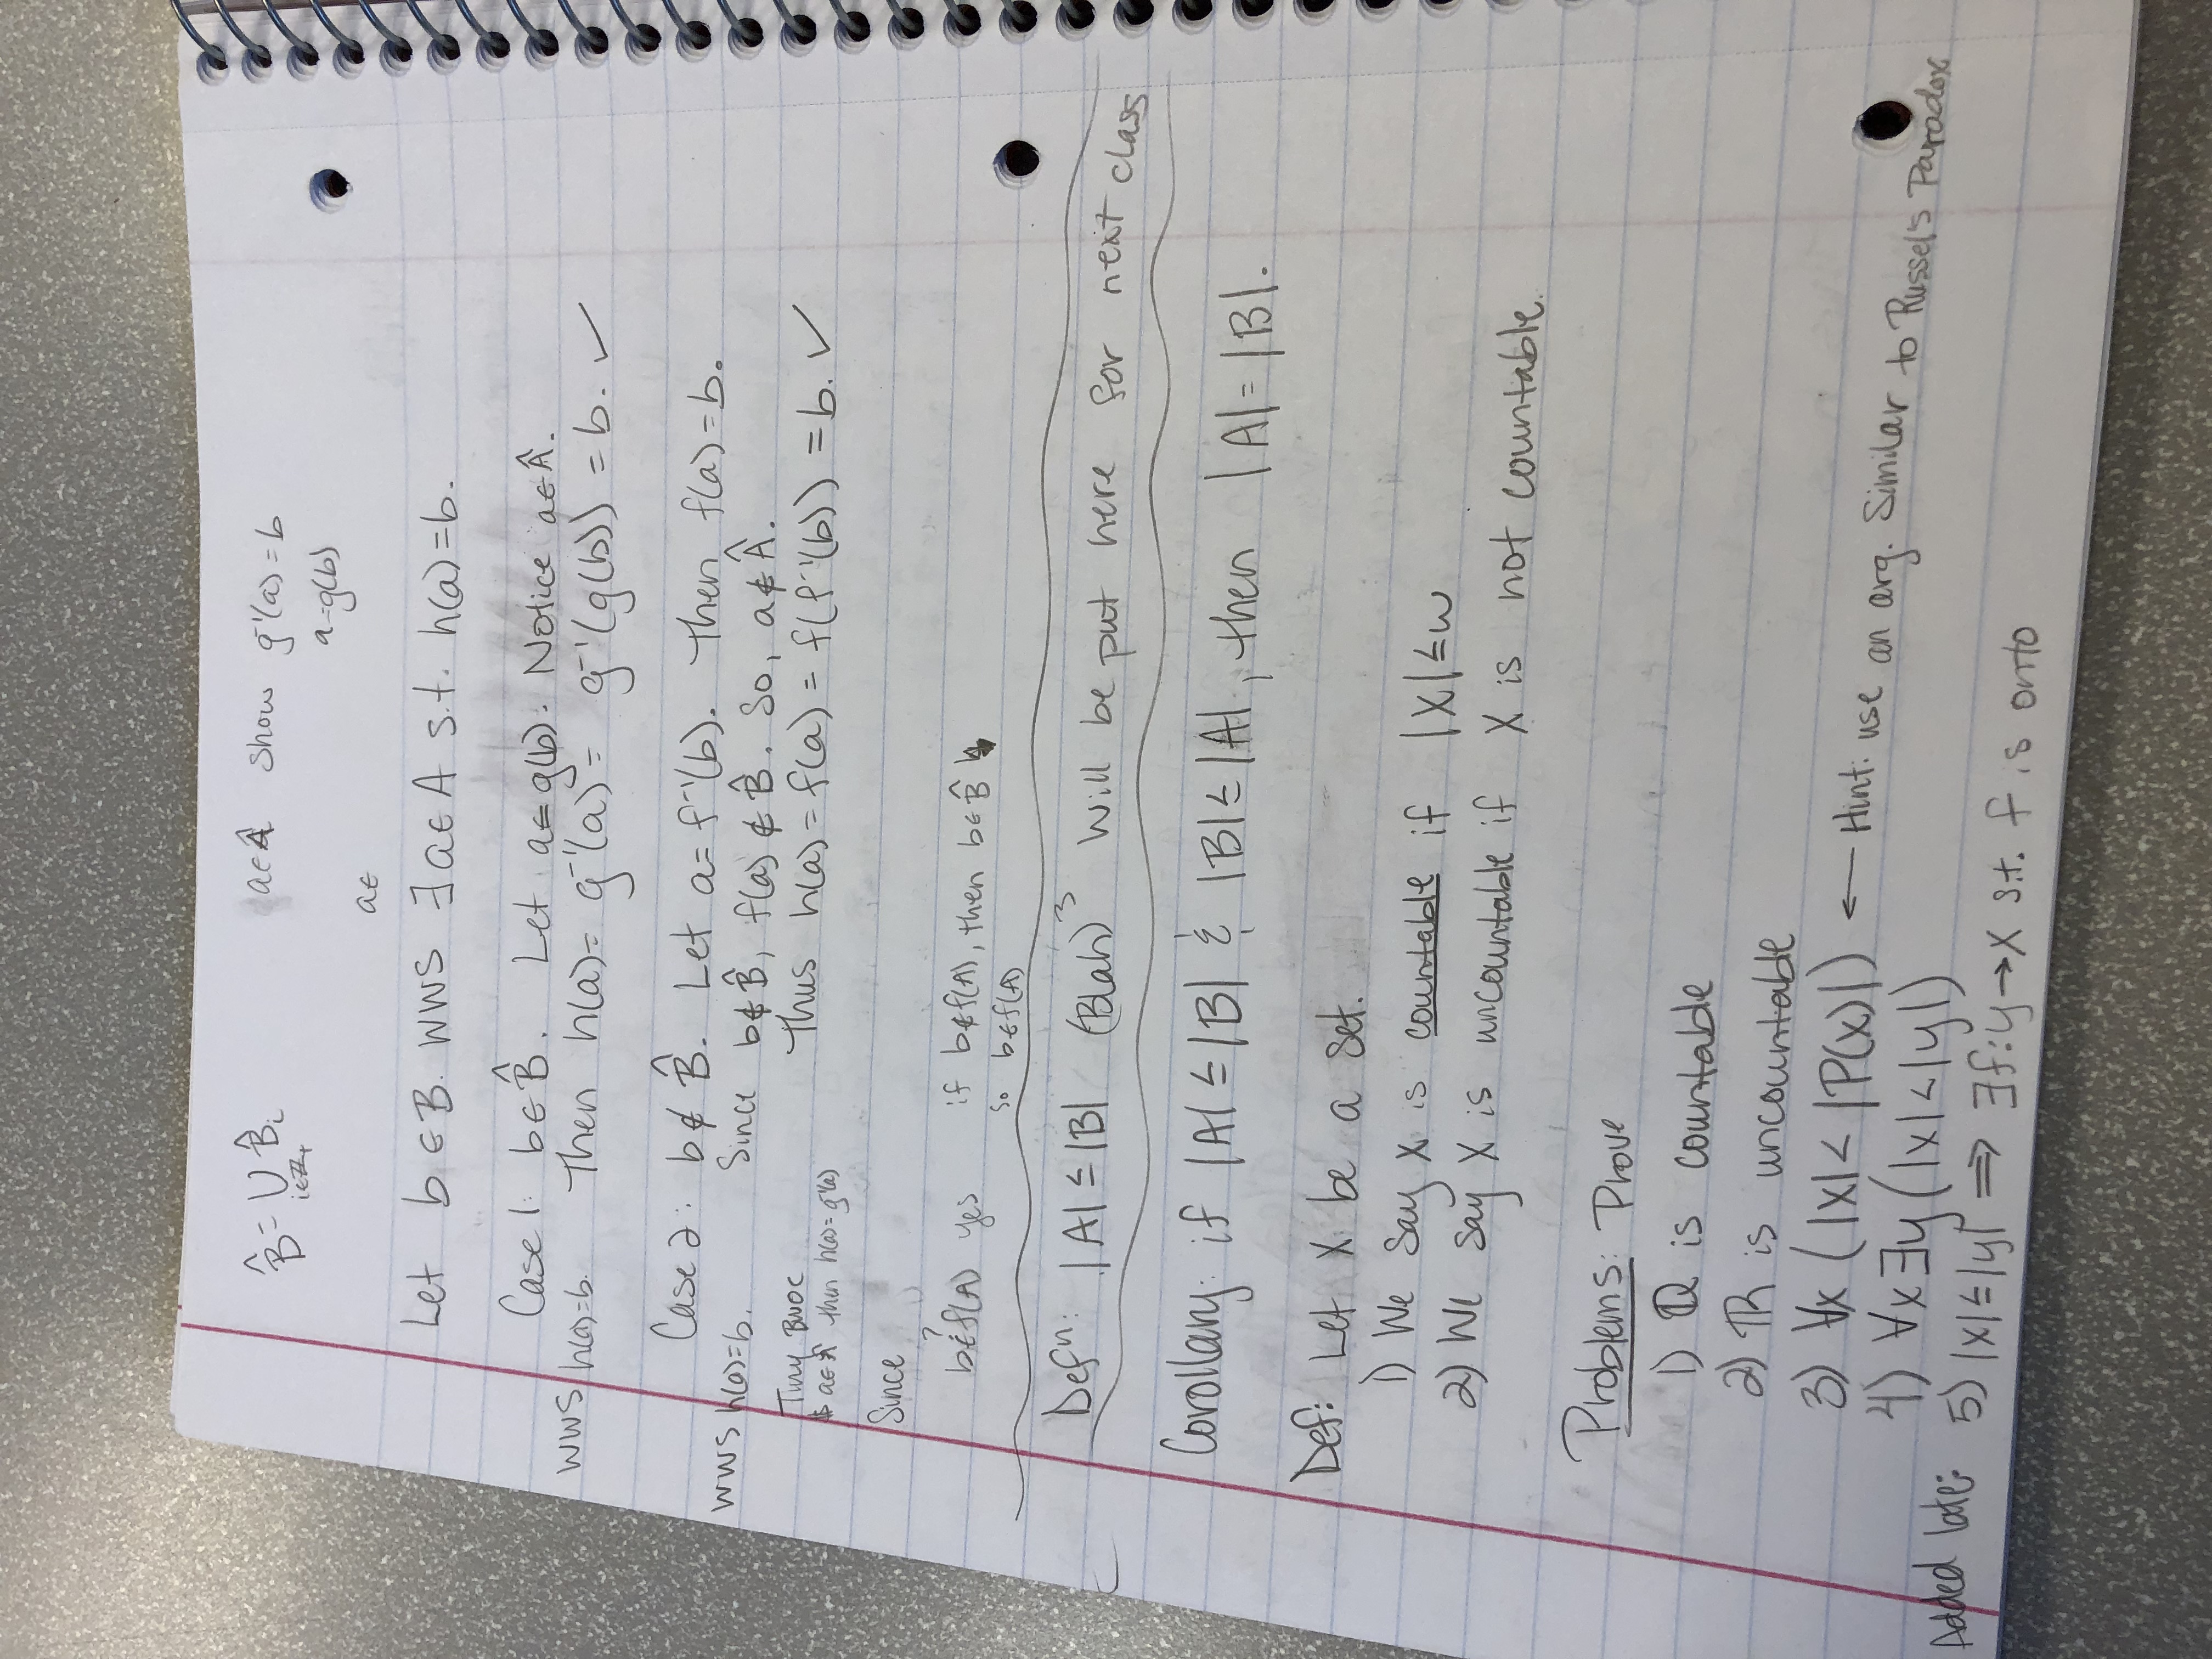 B̂ = ∪ B̂ᵢ
i∈ℤ₊
a∈Â show g⁻¹(a) = b
a = g(b)
a∈
Let b ∈ B. WWS ∃ a ∈ A s.t. h(a) = b.
Case 1: b ∈ B̂. Let a = g(b). Notice a ∈ Â.
WWS h(a)=b. Then h(a) = g⁻¹(a) = g⁻¹(g(b)) = b. ✓
Case 2: b ∉ B̂. Let a = f⁻¹(b). Then f(a) = b.
WWS h(a)=b. Since b ∉ B̂, f(a) ∉ B̂. So, a ∉ Â.
Tiny BWOC
Thus h(a) = f(a) = f(f⁻¹(b)) = b. ✓
a∈Â then h(a) = g⁻¹(a)
Since
?
b∈f(A) yes if b∉f(A), then b∈B̂ ↯
so b∈f(A)
Defⁿ: |A| ≤ |B| (Blah)³ will be put here for next class
Corollary: if |A| ≤ |B| & |B| ≤ |A|, then |A| = |B|.
Def: Let X be a set.
1) We say X is countable if |X| ≤ ω
2) We say X is uncountable if X is not countable.
Problems: Prove
1) ℚ is countable
2) ℝ is uncountable
3) ∀x (|x| < |P(x)|) ← Hint: use an arg. Similar to Russel's Paradox
4) ∀x ∃y (|x| < |y|)
Added late: 5) |x| ≤ |y| ⟹ ∃f: y → x s.t. f is onto